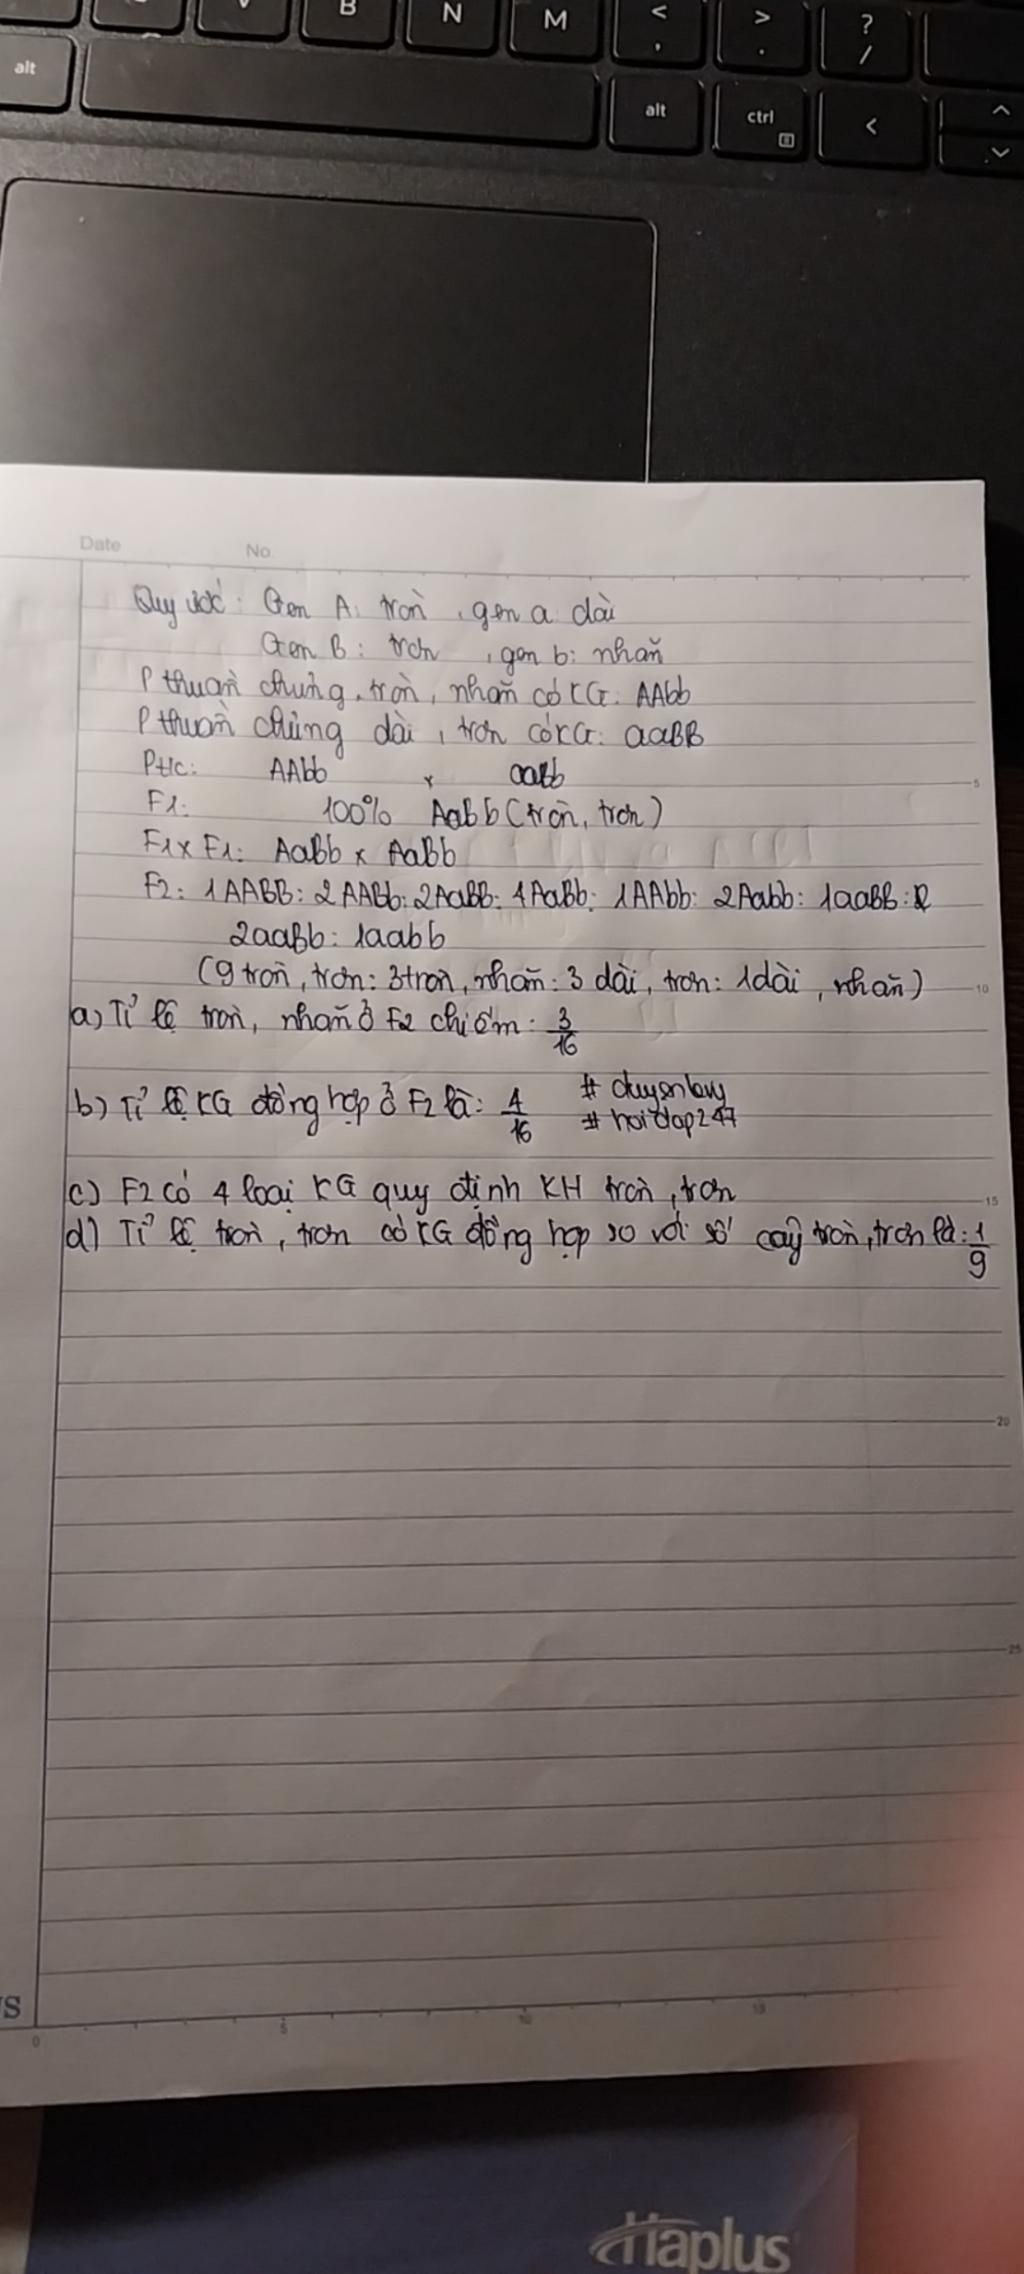 V B N M < , > . ? /
alt alt ctrl < ^ v
Date No.
Quy ước: Gen A: tròn, gen a: dài
Gen B: trơn, gen b: nhăn
P thuần chủng, tròn, nhăn có KG: AAbb
P thuần chủng dài, trơn có KG: aaBB
Ptc: AAbb x aaBb
F1: 100% AaBb (tròn, trơn)
F1 x F1: AaBb x AaBb
F2: 1AABB: 2AABb: 2AaBB: 4AaBb: 1AAbb: 2Aabb: 1aaBB:
2aaBb: 1aabb
(9 tròn, trơn: 3 tròn, nhăn: 3 dài, trơn: 1 dài, nhăn)
a) Tỉ lệ tròn, nhăn ở F2 chiếm: 3/16
b) Tỉ lệ KG đồng hợp ở F2 là: 4/16 # duyenlavy
# hoidap247
c) F2 có 4 loại KG quy định KH tròn, trơn
d) Tỉ lệ tròn, trơn có KG đồng hợp so với số cây tròn, trơn là: 1/9
5
10
15
20
25
us
0 5 10 15
Haplus